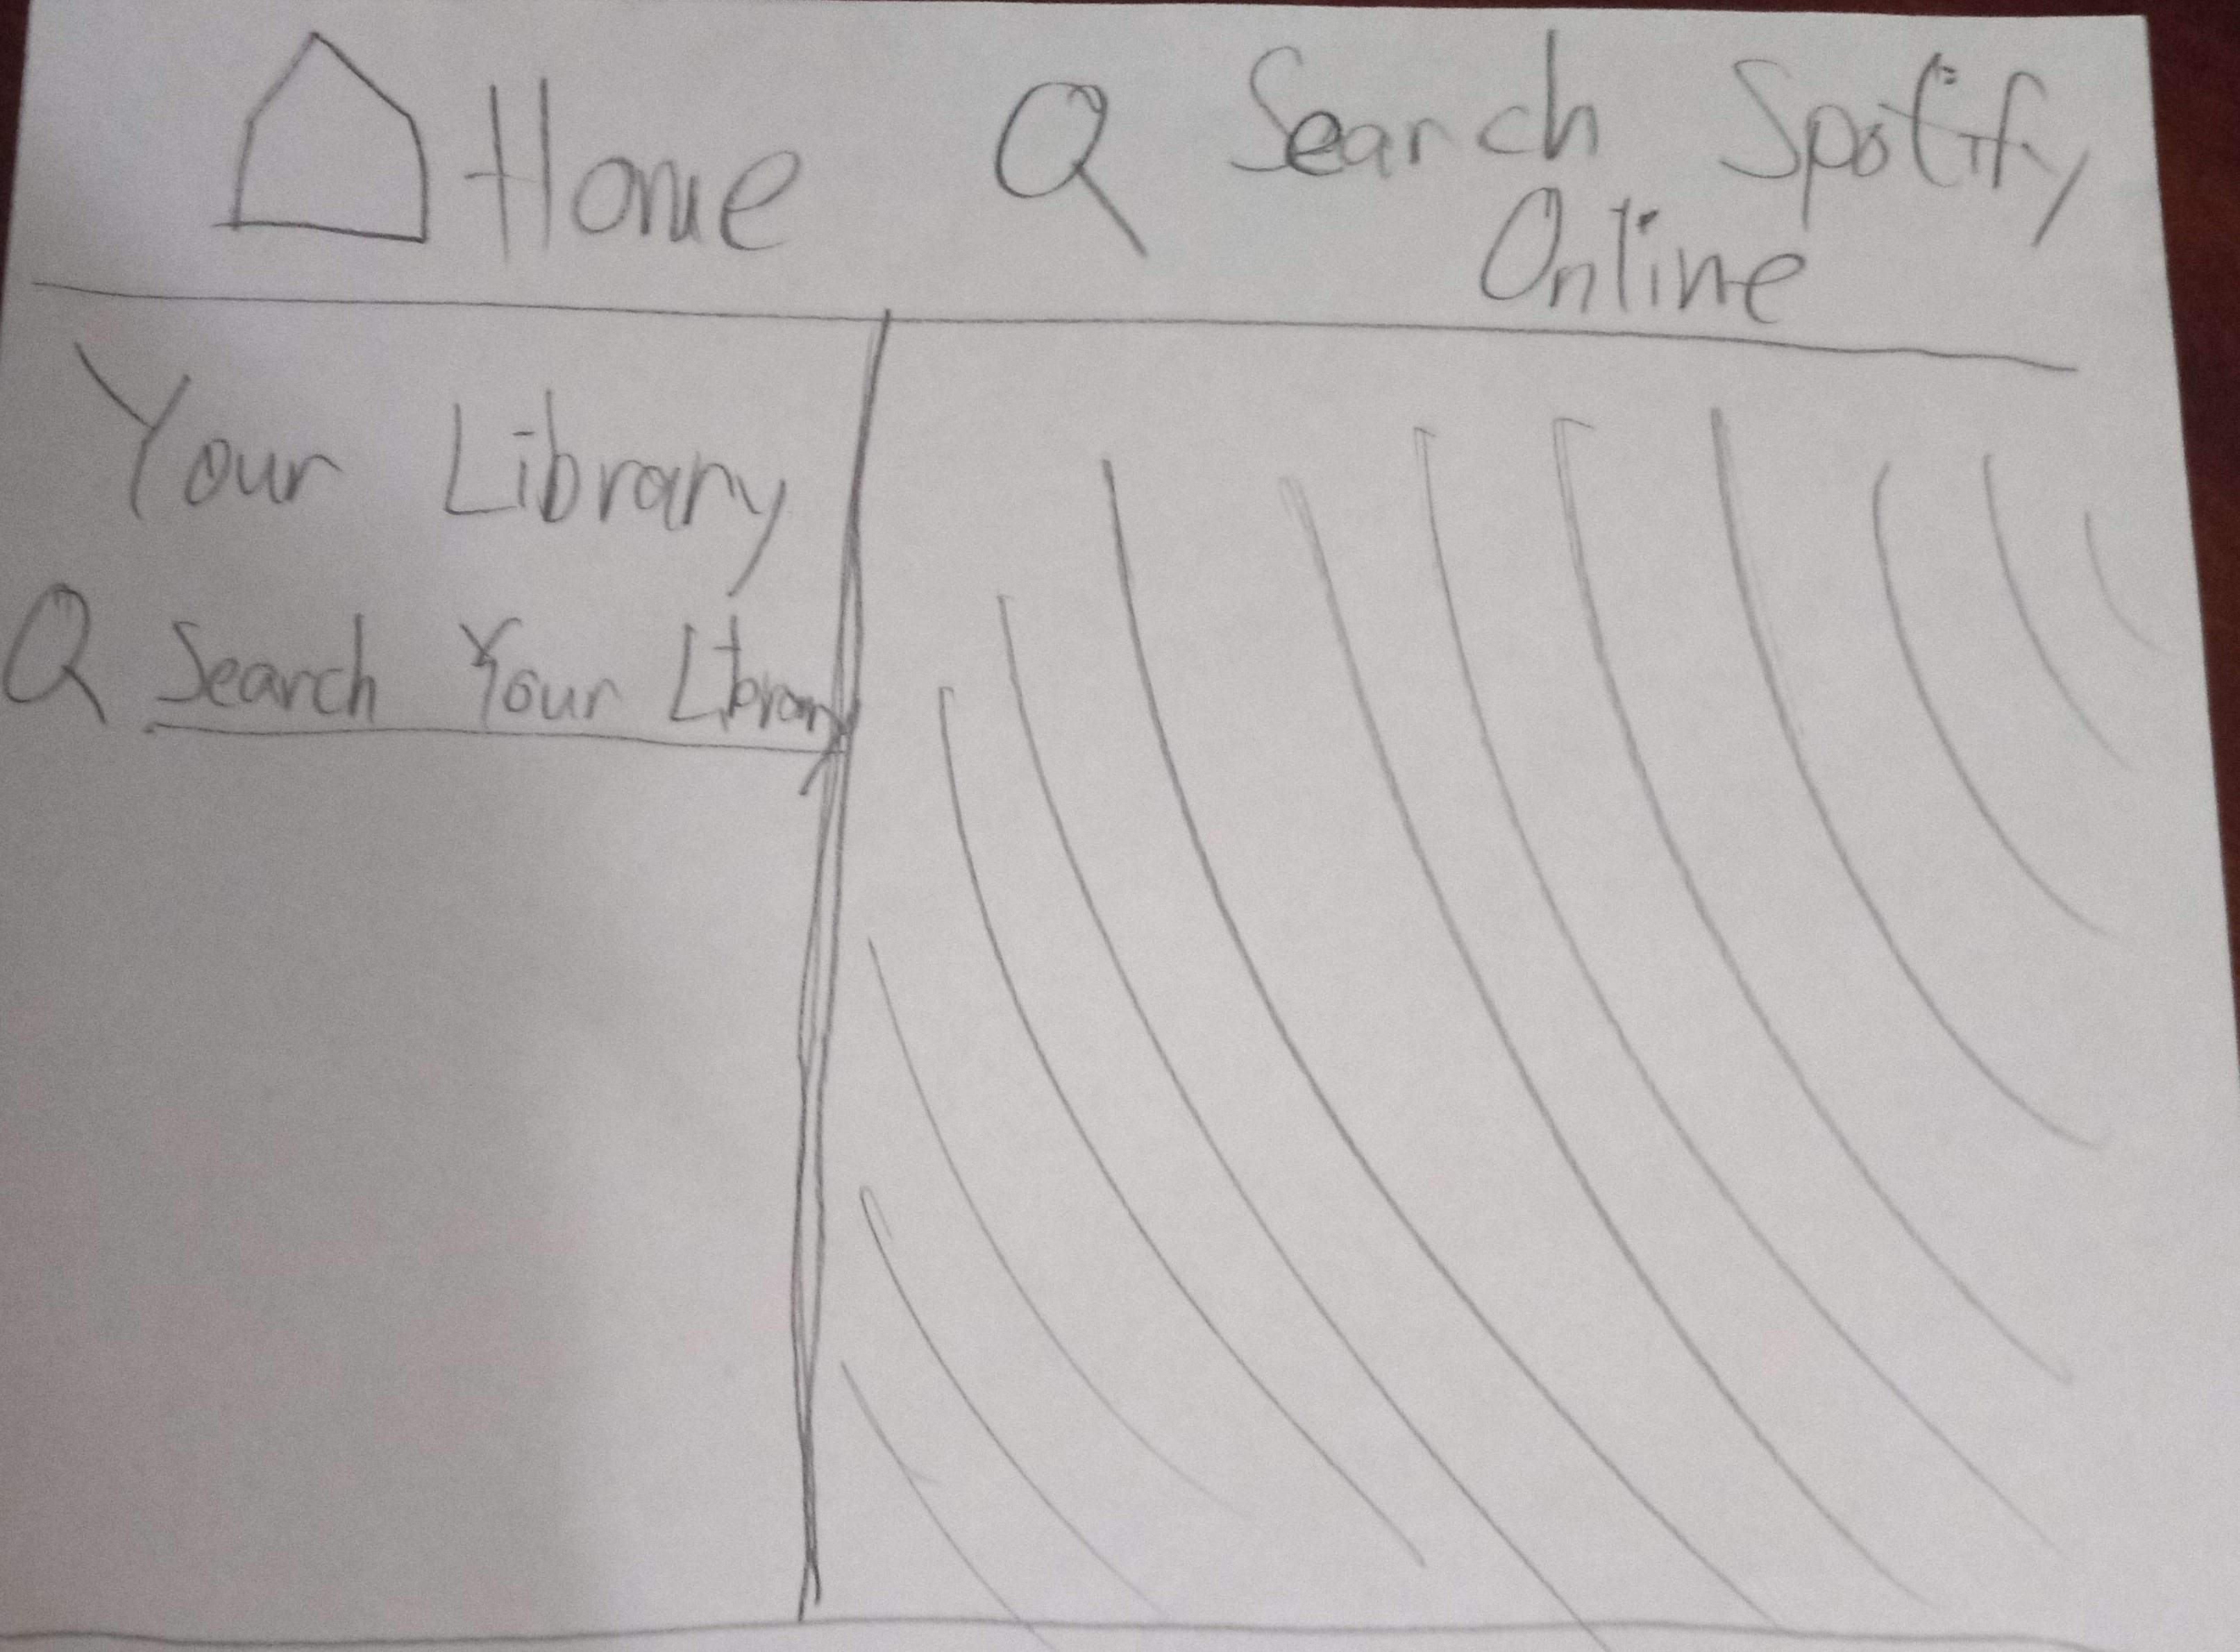 Home
Search Spotify
Online
Your Library
Search Your Library